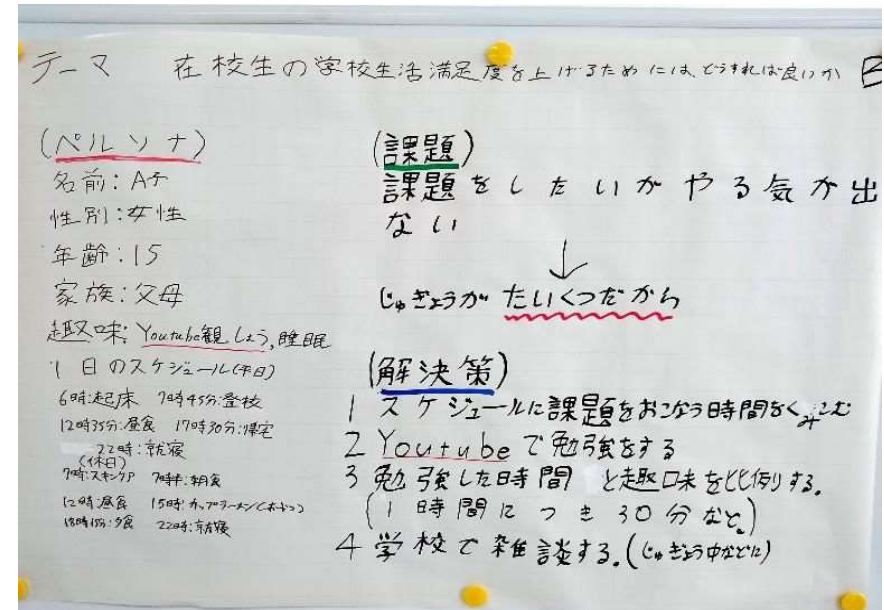 テーマ 在校生の学校生活満足度を上げるためには、どうすれば良いか
(ペルソナ)
名前:A子
性別:女性
年齢:15
家族:父母
趣味:Youtube観しょう,睡眠
1日のスケジュール(平日)
6時:起床 7時45分:登校
12時35分:昼食 17時30分:帰宅
22時:就寝
(休日)
7時:スキンケア 7時半:朝食
12時:昼食 15時:カップラーメン(おやつ)
18時15分:夕食 22時:就寝
(課題)
課題をしたいがやる気が出
ない
↓
じゅぎょうがたいくつだから
(解決策)
1 スケジュールに課題をおこなう時間をくみこむ
2 Youtubeで勉強をする
3 勉強した時間と趣味を比例する。
(1時間につき30分など。)
4 学校で雑談する。(じゅぎょう中などに)